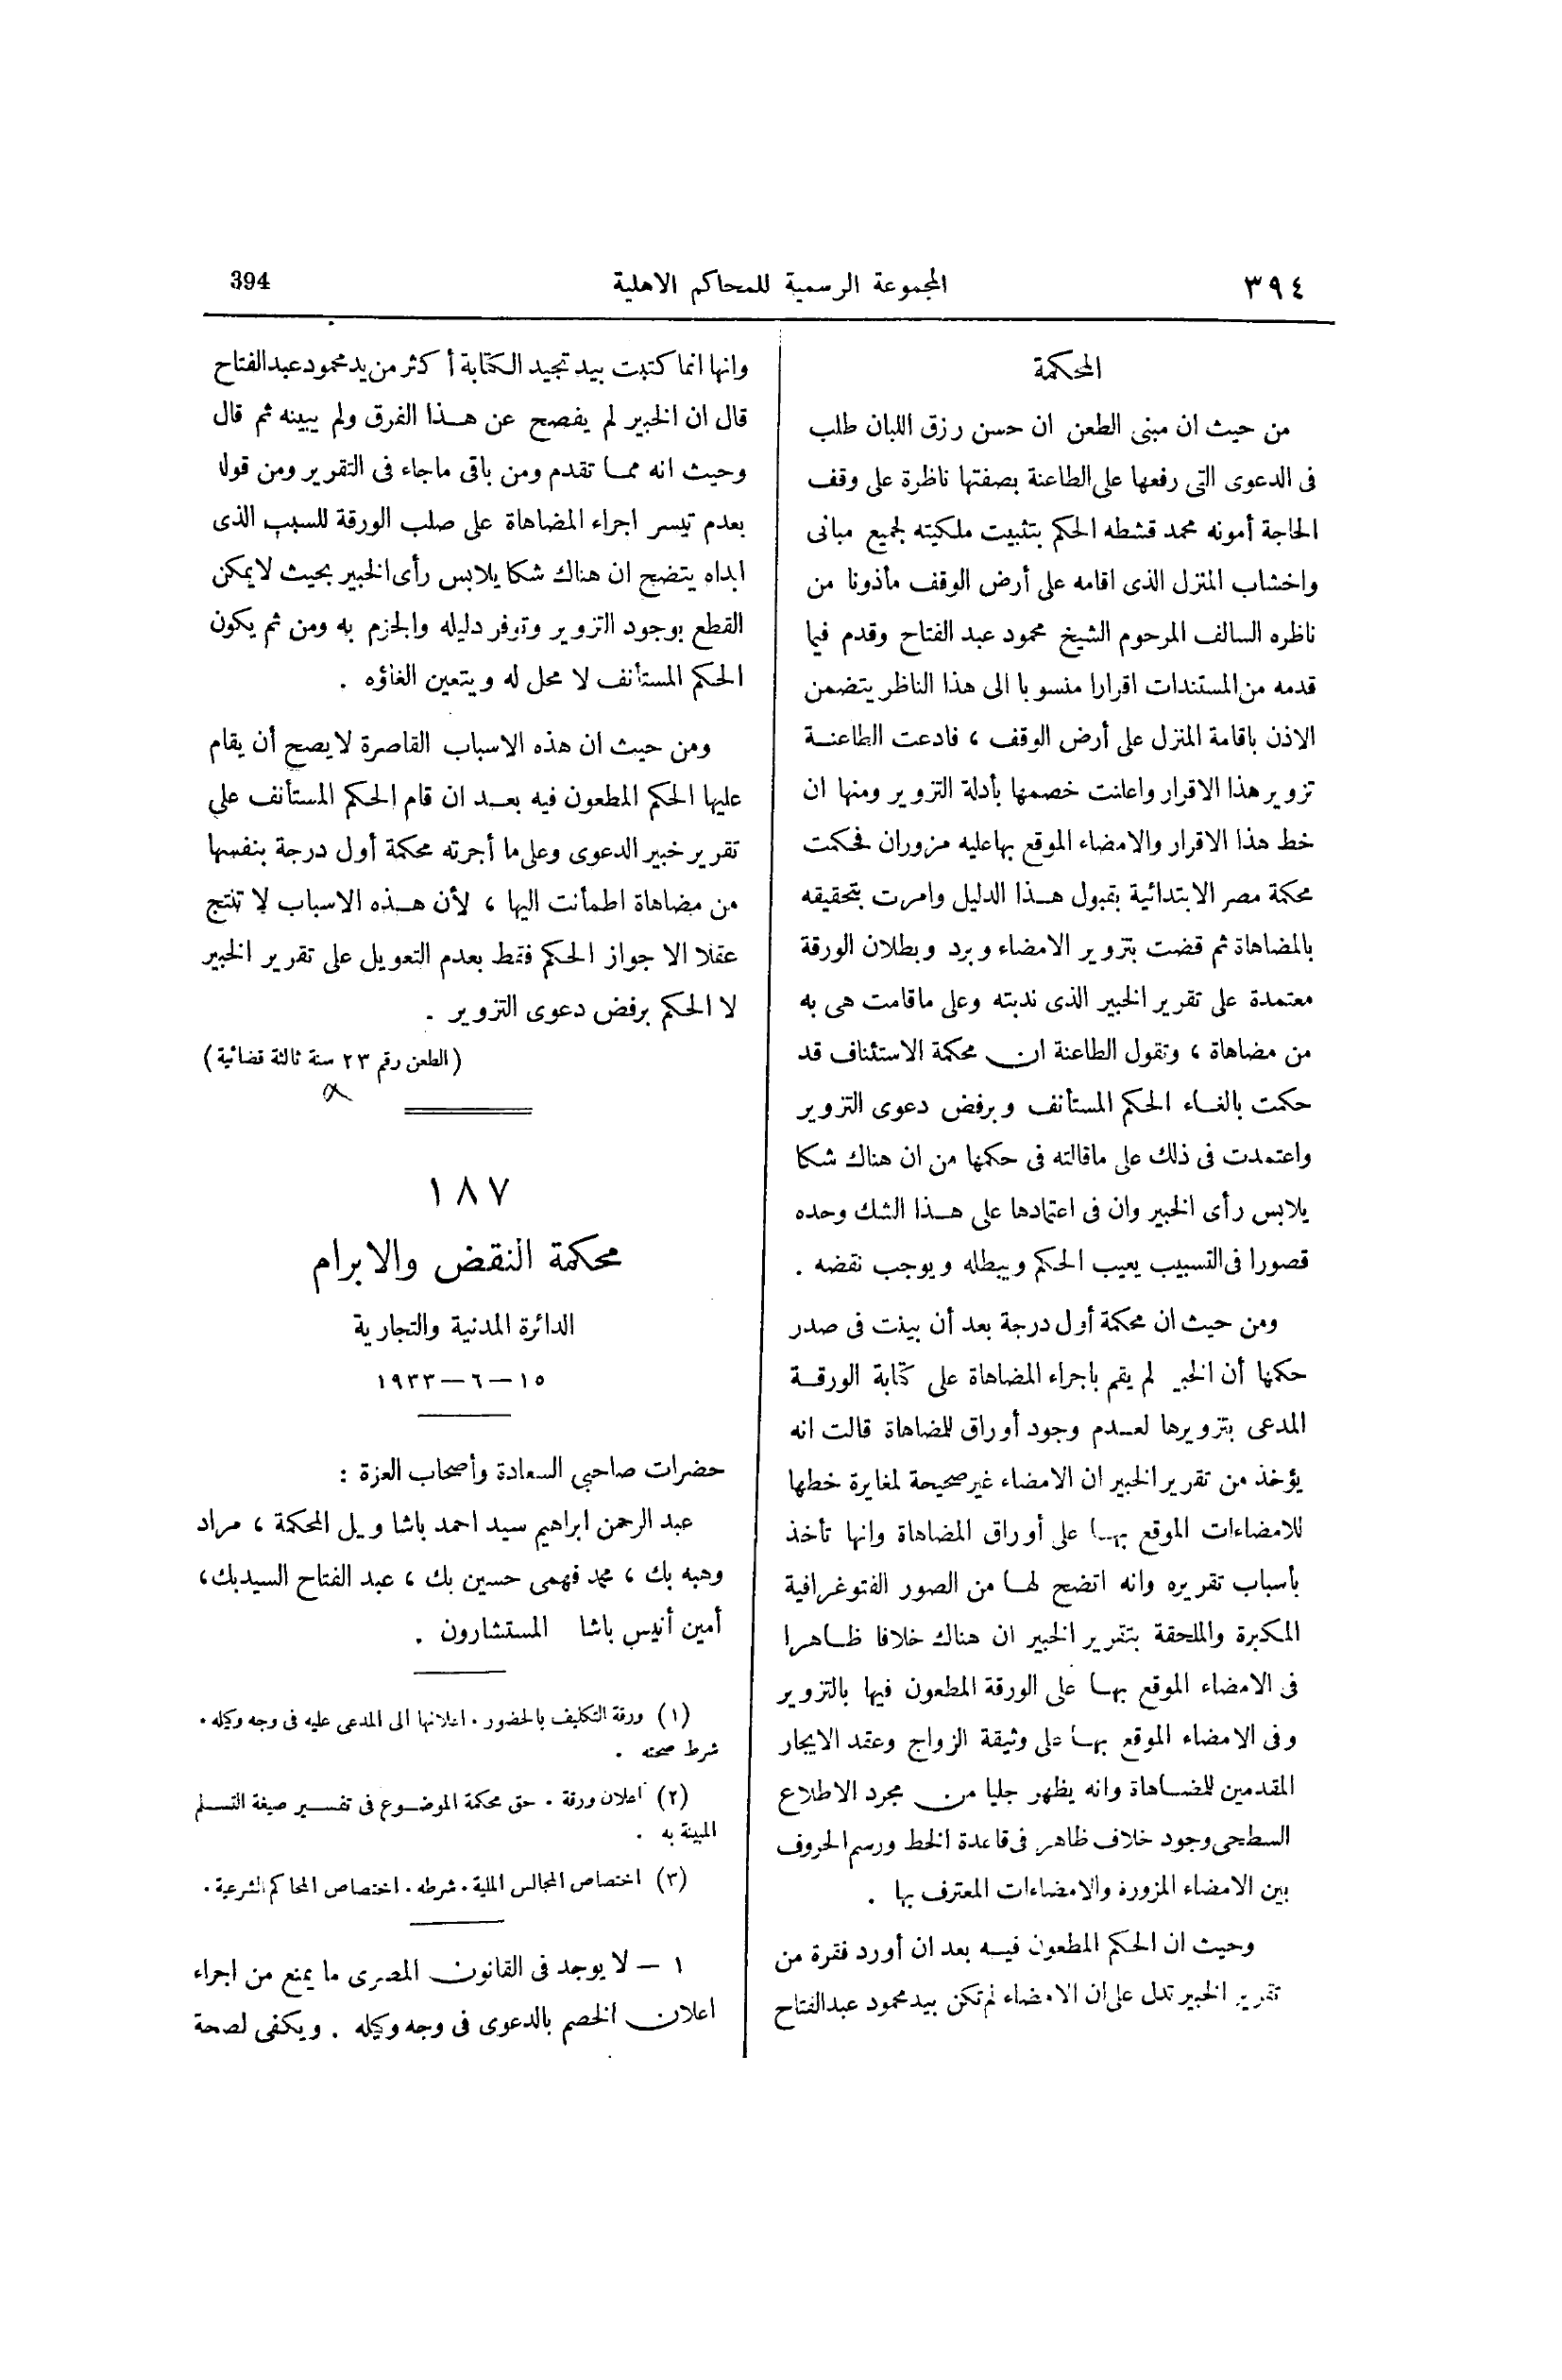 ٣٩٤
المجموعة الرسمية للمحاكم الاهلية
394
المحكمة
من حيث ان مبنى الطعن ان حسن رزق اللبان طلب
فى الدعوى التى رفعها على الطاعنة بصفتها ناظرة على وقف
الحاجة أمونه محمد قشطه الحكم بتثبيت ملكيته لجميع مبانى
واخشاب المنزل الذى اقامه على أرض الوقف مأذونا من
ناظره السالف المرحوم الشيخ محمود عبد الفتاح وقدم فيما
قدمه من المستندات اقرارا منسوبا الى هذا الناظر يتضمن
الاذن باقامة المنزل على أرض الوقف ، فادعت الطاعنة
تزوير هذا الاقرار واعلنت خصمها بأدلة التزوير ومنها ان
خط هذا الاقرار والامضاء الموقع بها عليه مزوران فحكمت
محكمة مصر الابتدائية بقبول هذا الدليل وامرت بتحقيقه
بالمضاهاة ثم قضت بتزوير الامضاء وبرد وبطلان الورقة
معتمدة على تقرير الخبير الذى ندبته وعلى ماقامت هى به
من مضاهاة ، وتقول الطاعنة ان محكمة الاستئناف قد
حكمت بالغاء الحكم المستأنف وبرفض دعوى التزوير
واعتمدت فى ذلك على ماقالته فى حكمها من ان هناك شكا
يلابس رأى الخبير وان فى اعتمادها على هذا الشك وحده
قصورا فى التسبيب يعيب الحكم ويبطله ويوجب نقضه .
ومن حيث ان محكمة أول درجة بعد أن بينت فى صدر
حكمها أن الخبير لم يقم باجراء المضاهاة على كتابة الورقة
المدعى بتزويرها لعدم وجود أوراق للمضاهاة قالت انه
يؤخذ من تقرير الخبير ان الامضاء غير صحيحة لمغايرة خطها
للامضاءات الموقع بها على أوراق المضاهاة وانها تأخذ
بأسباب تقريره وانه اتضح لها من الصور الفتوغرافية
المكبرة والملحقة بتقرير الخبير ان هناك خلافا ظاهرا
فى الامضاء الموقع بها على الورقة المطعون فيها بالتزوير
وفى الامضاء الموقع بها على وثيقة الزواج وعقد الايجار
المقدمين للمضاهاة وانه يظهر جليا من مجرد الاطلاع
السطحى وجود خلاف ظاهر فى قاعدة الخط ورسم الحروف
بين الامضاء المزورة والامضاءات المعترف بها .
وحيث ان الحكم المطعون فيه بعد ان أورد فقرة من
تقرير الخبير تدل على ان الامضاء لم تكن بيد محمود عبد الفتاح
وانها انما كتبت بيد تجيد الكتابة أكثر من يد محمود عبد الفتاح
قال ان الخبير لم يفصح عن هذا الفرق ولم يبينه ثم قال
وحيث انه مما تقدم ومن باقى ماجاء فى التقرير ومن قوله
بعدم تيسر اجراء المضاهاة على صلب الورقة للسبب الذى
ابداه يتضح ان هناك شكا يلابس رأى الخبير بحيث لا يمكن
القطع بوجود التزوير وتوفر دليله والجزم به ومن ثم يكون
الحكم المستأنف لا محل له ويتعين الغاؤه .
ومن حيث ان هذه الاسباب القاصرة لا يصح أن يقام
عليها الحكم المطعون فيه بعد ان قام الحكم المستأنف على
تقرير خبير الدعوى وعلى ما أجرته محكمة أول درجة بنفسها
من مضاهاة اطمأنت اليها ، لأن هذه الاسباب لا تنتج
عقلا الا جواز الحكم فقط بعدم التعويل على تقرير الخبير
لا الحكم برفض دعوى التزوير .
(الطعن رقم ٢٣ سنة ثالثة قضائية)
١٨٧
محكمة النقض والابرام
الدائرة المدنية والتجارية
١٥ — ٦ — ١٩٣٣
حضرات صاحبى السعادة وأصحاب العزة :
عبد الرحمن ابراهيم سيد احمد باشا وكيل المحكمة ، مراد
وهبه بك ، محمد فهمى حسين بك ، عبد الفتاح السيد بك ،
أمين أنيس باشا المستشارون .
(١) ورقة التكليف بالحضور . اعلانها الى المدعى عليه فى وجه وكيله .
شرط صحته .
(٢) اعلان ورقة . حق محكمة الموضوع فى تفسير صيغة التسلم
المبينة به .
(٣) اختصاص المجالس الملية . شرطه . اختصاص المحاكم الشرعية .
١ — لا يوجد فى القانون المصرى ما يمنع من اجراء
اعلان الخصم بالدعوى فى وجه وكيله . ويكفى لصحة